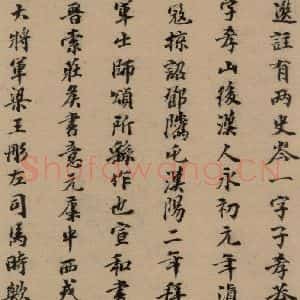 選註有兩史岑一字子孝莽
字孝山後漢人永初元年滇
寇掠詔鄧騭屯漢陽二年拜
軍出師頌所繇作也宣和書
晉索莊矦書意元康中西戎
大將軍梁王彤左司馬時歟
Shufawang.CN